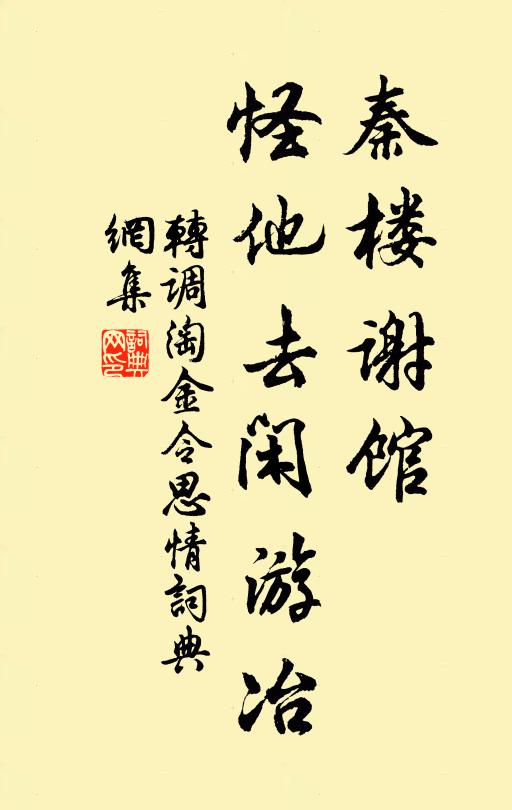 秦楼谢馆
怪他去闲游冶
轉调淘金令思情詞典
網集
詞典
网印